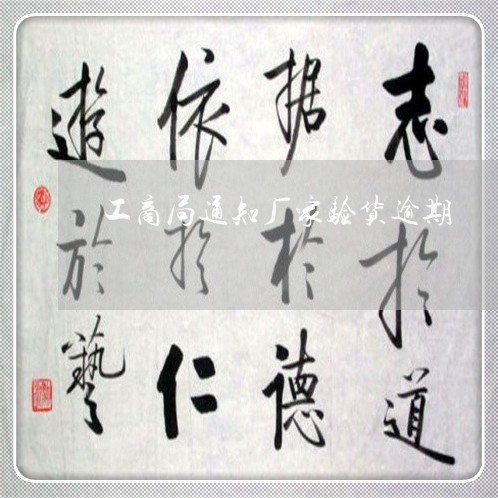 志於道
据於德
依於仁
遊於藝
工商局通知厂家验货逾期